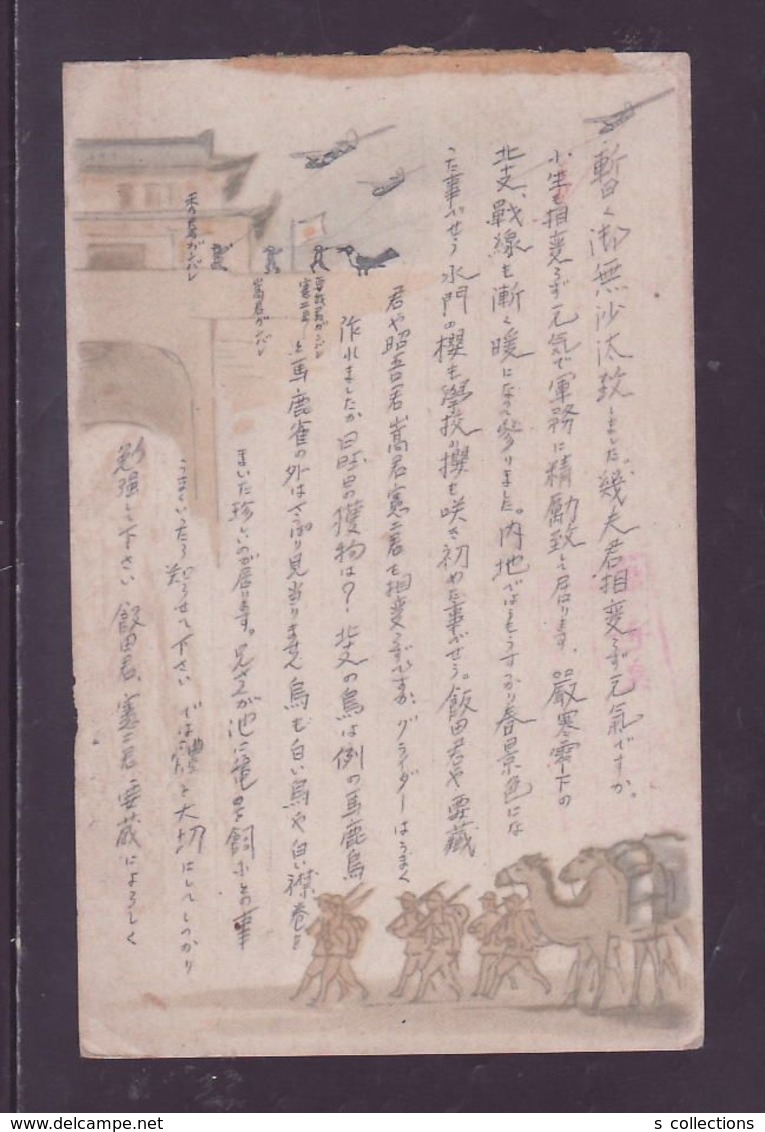 暫く御無沙汰致しました。幾夫君相変らず元気ですか。
小生も相変らず元気で軍務に精励致して居ります。厳寒零下の
北支戦線も漸く暖になつて参りました。内地ではもうすつかり春景色にな
つた事でせう 水門の櫻も學校の櫻も咲き初めた事でせう。飯田君や要藏
君や昭吉君嵩君憲二君も相変らずですか、グライダーはうまく
作れましたか 日曜日の獲物は？ 北支の鳥は例の馬鹿鳥
と馬鹿雀の外はさつぱり見当りません 烏も白い烏や白い襟巻を
まいた珍しいのが居ります。兄さんが池に亀の子飼ふとの事
うまくいつたら知らせて下さい では體を大切にしてしつかり
勉強して下さい 飯田君、憲二君 要蔵によろしく
要蔵君ガンバレ
憲二君
嵩君ガンバレ
ガンバレ
s collections